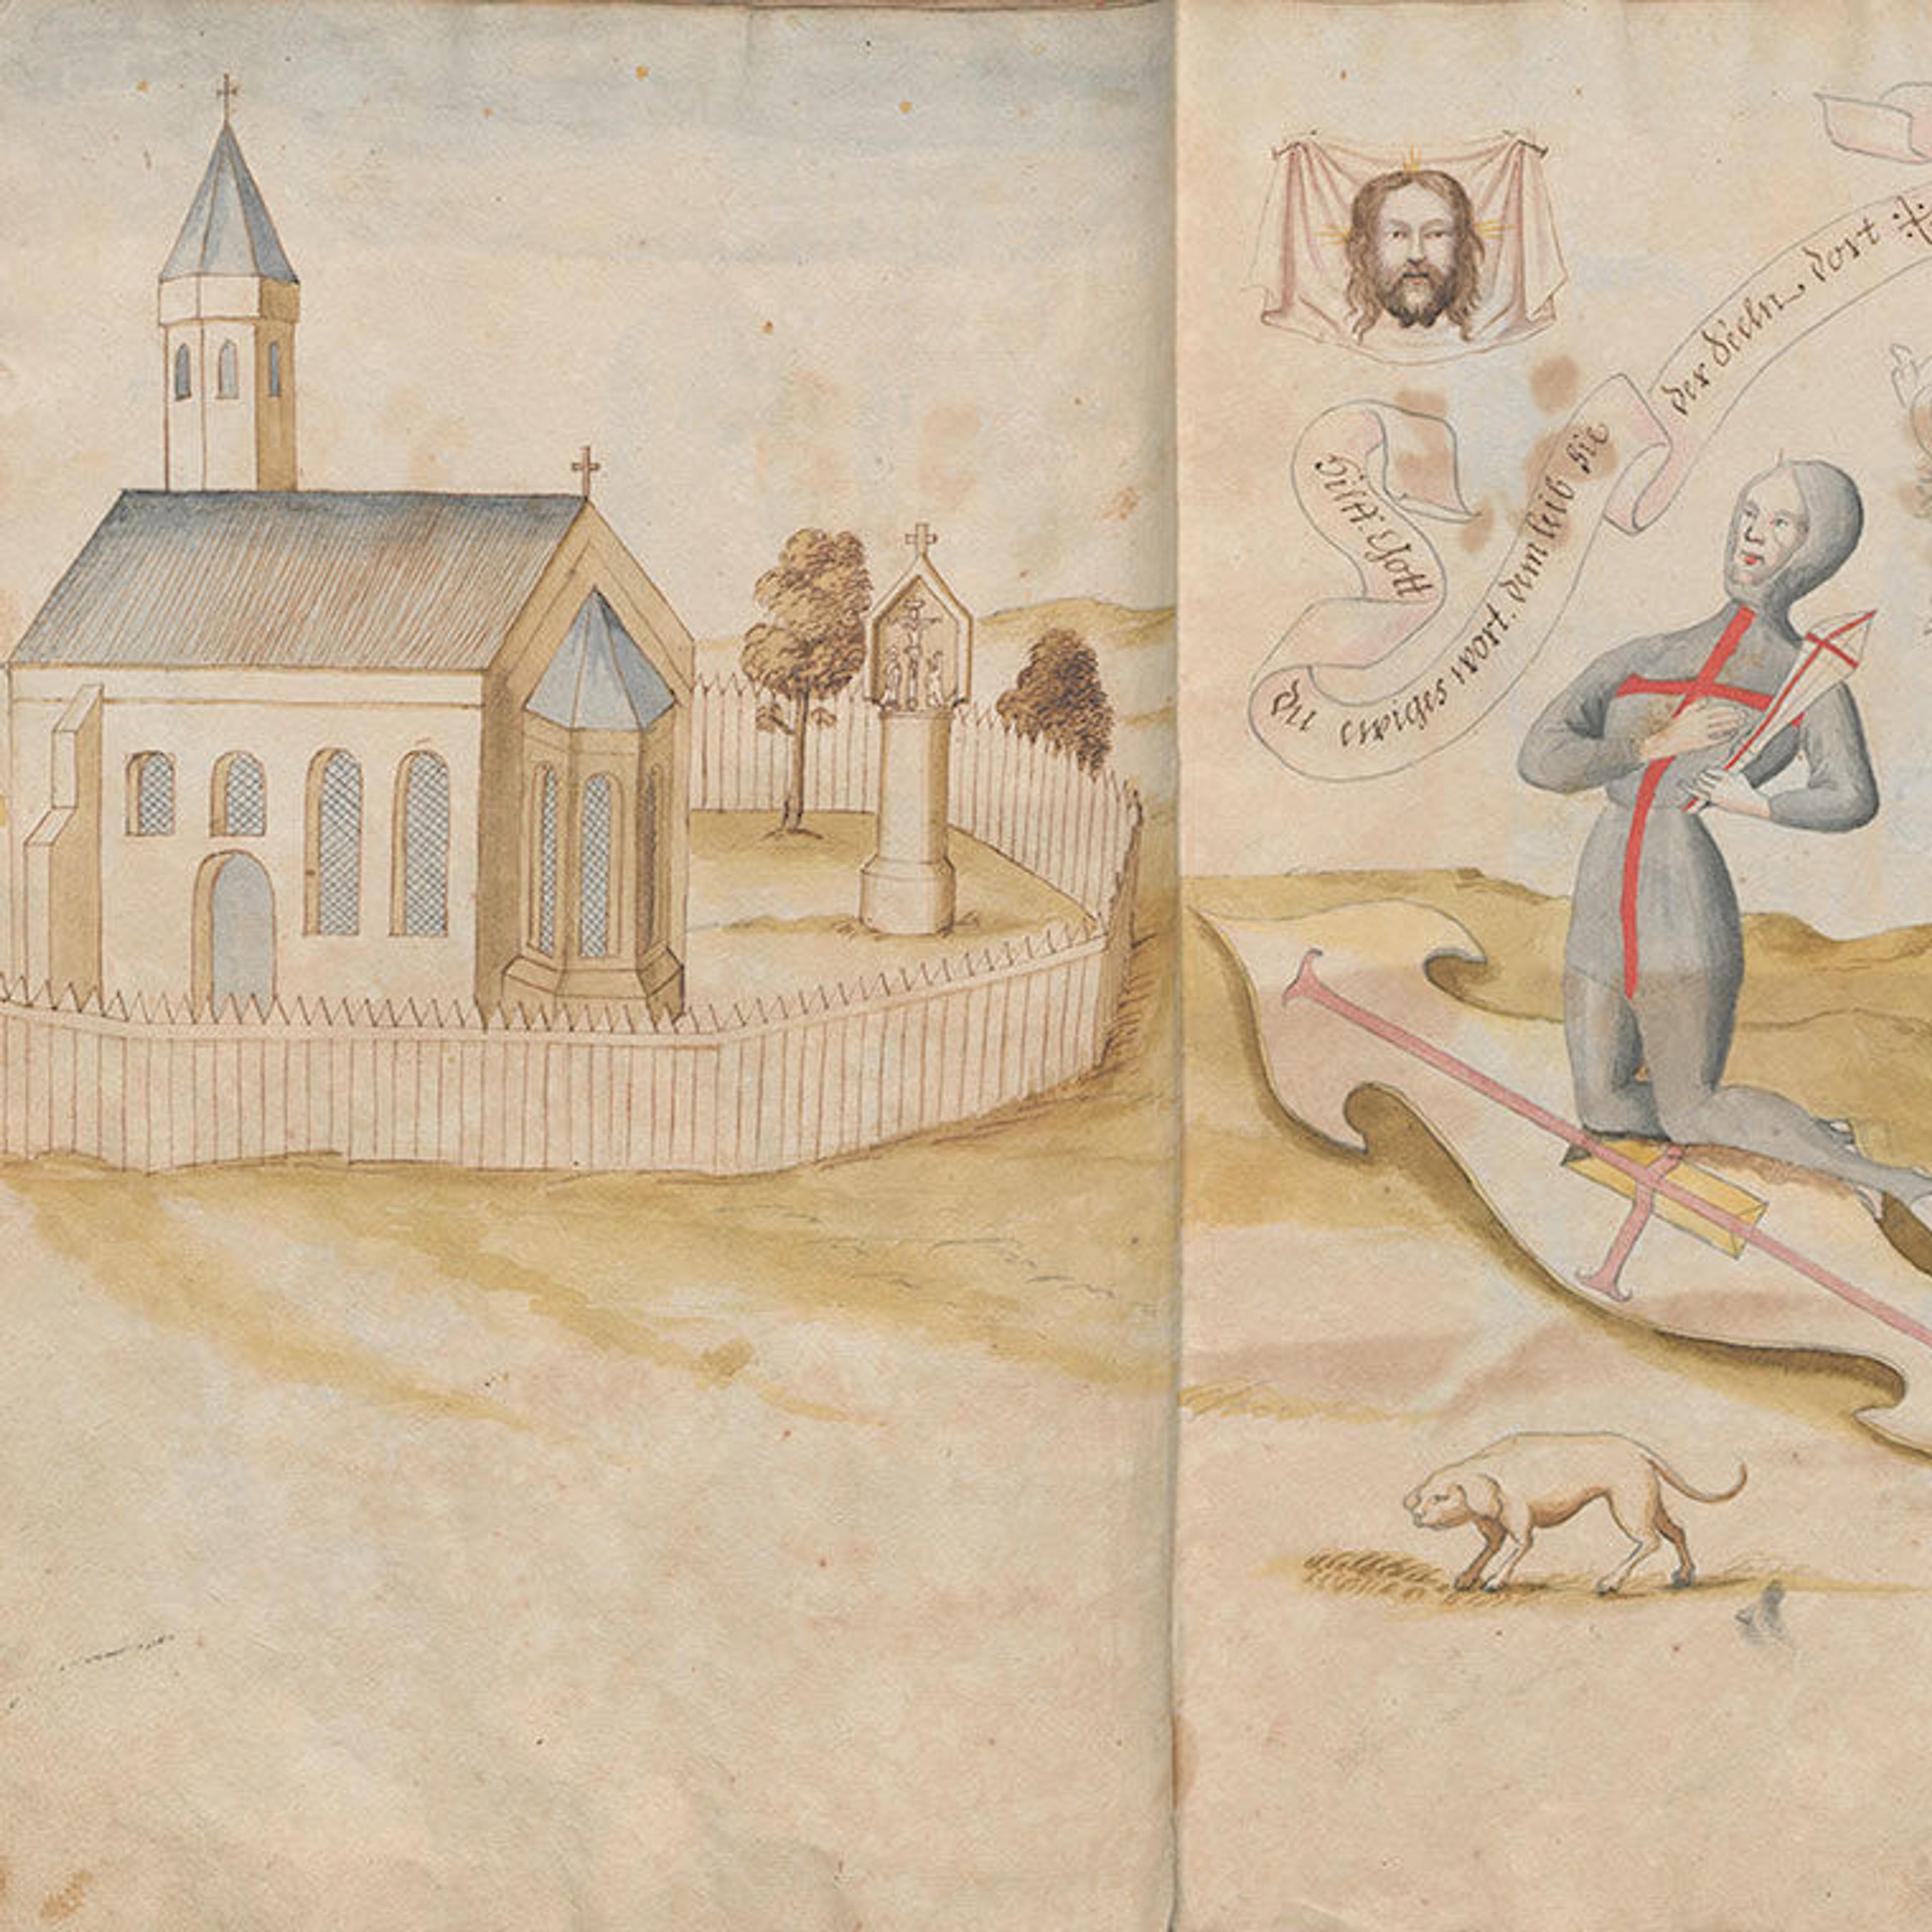 Hilff. Gott
du ewiges wort. dem leib hie
der Seeln. dort